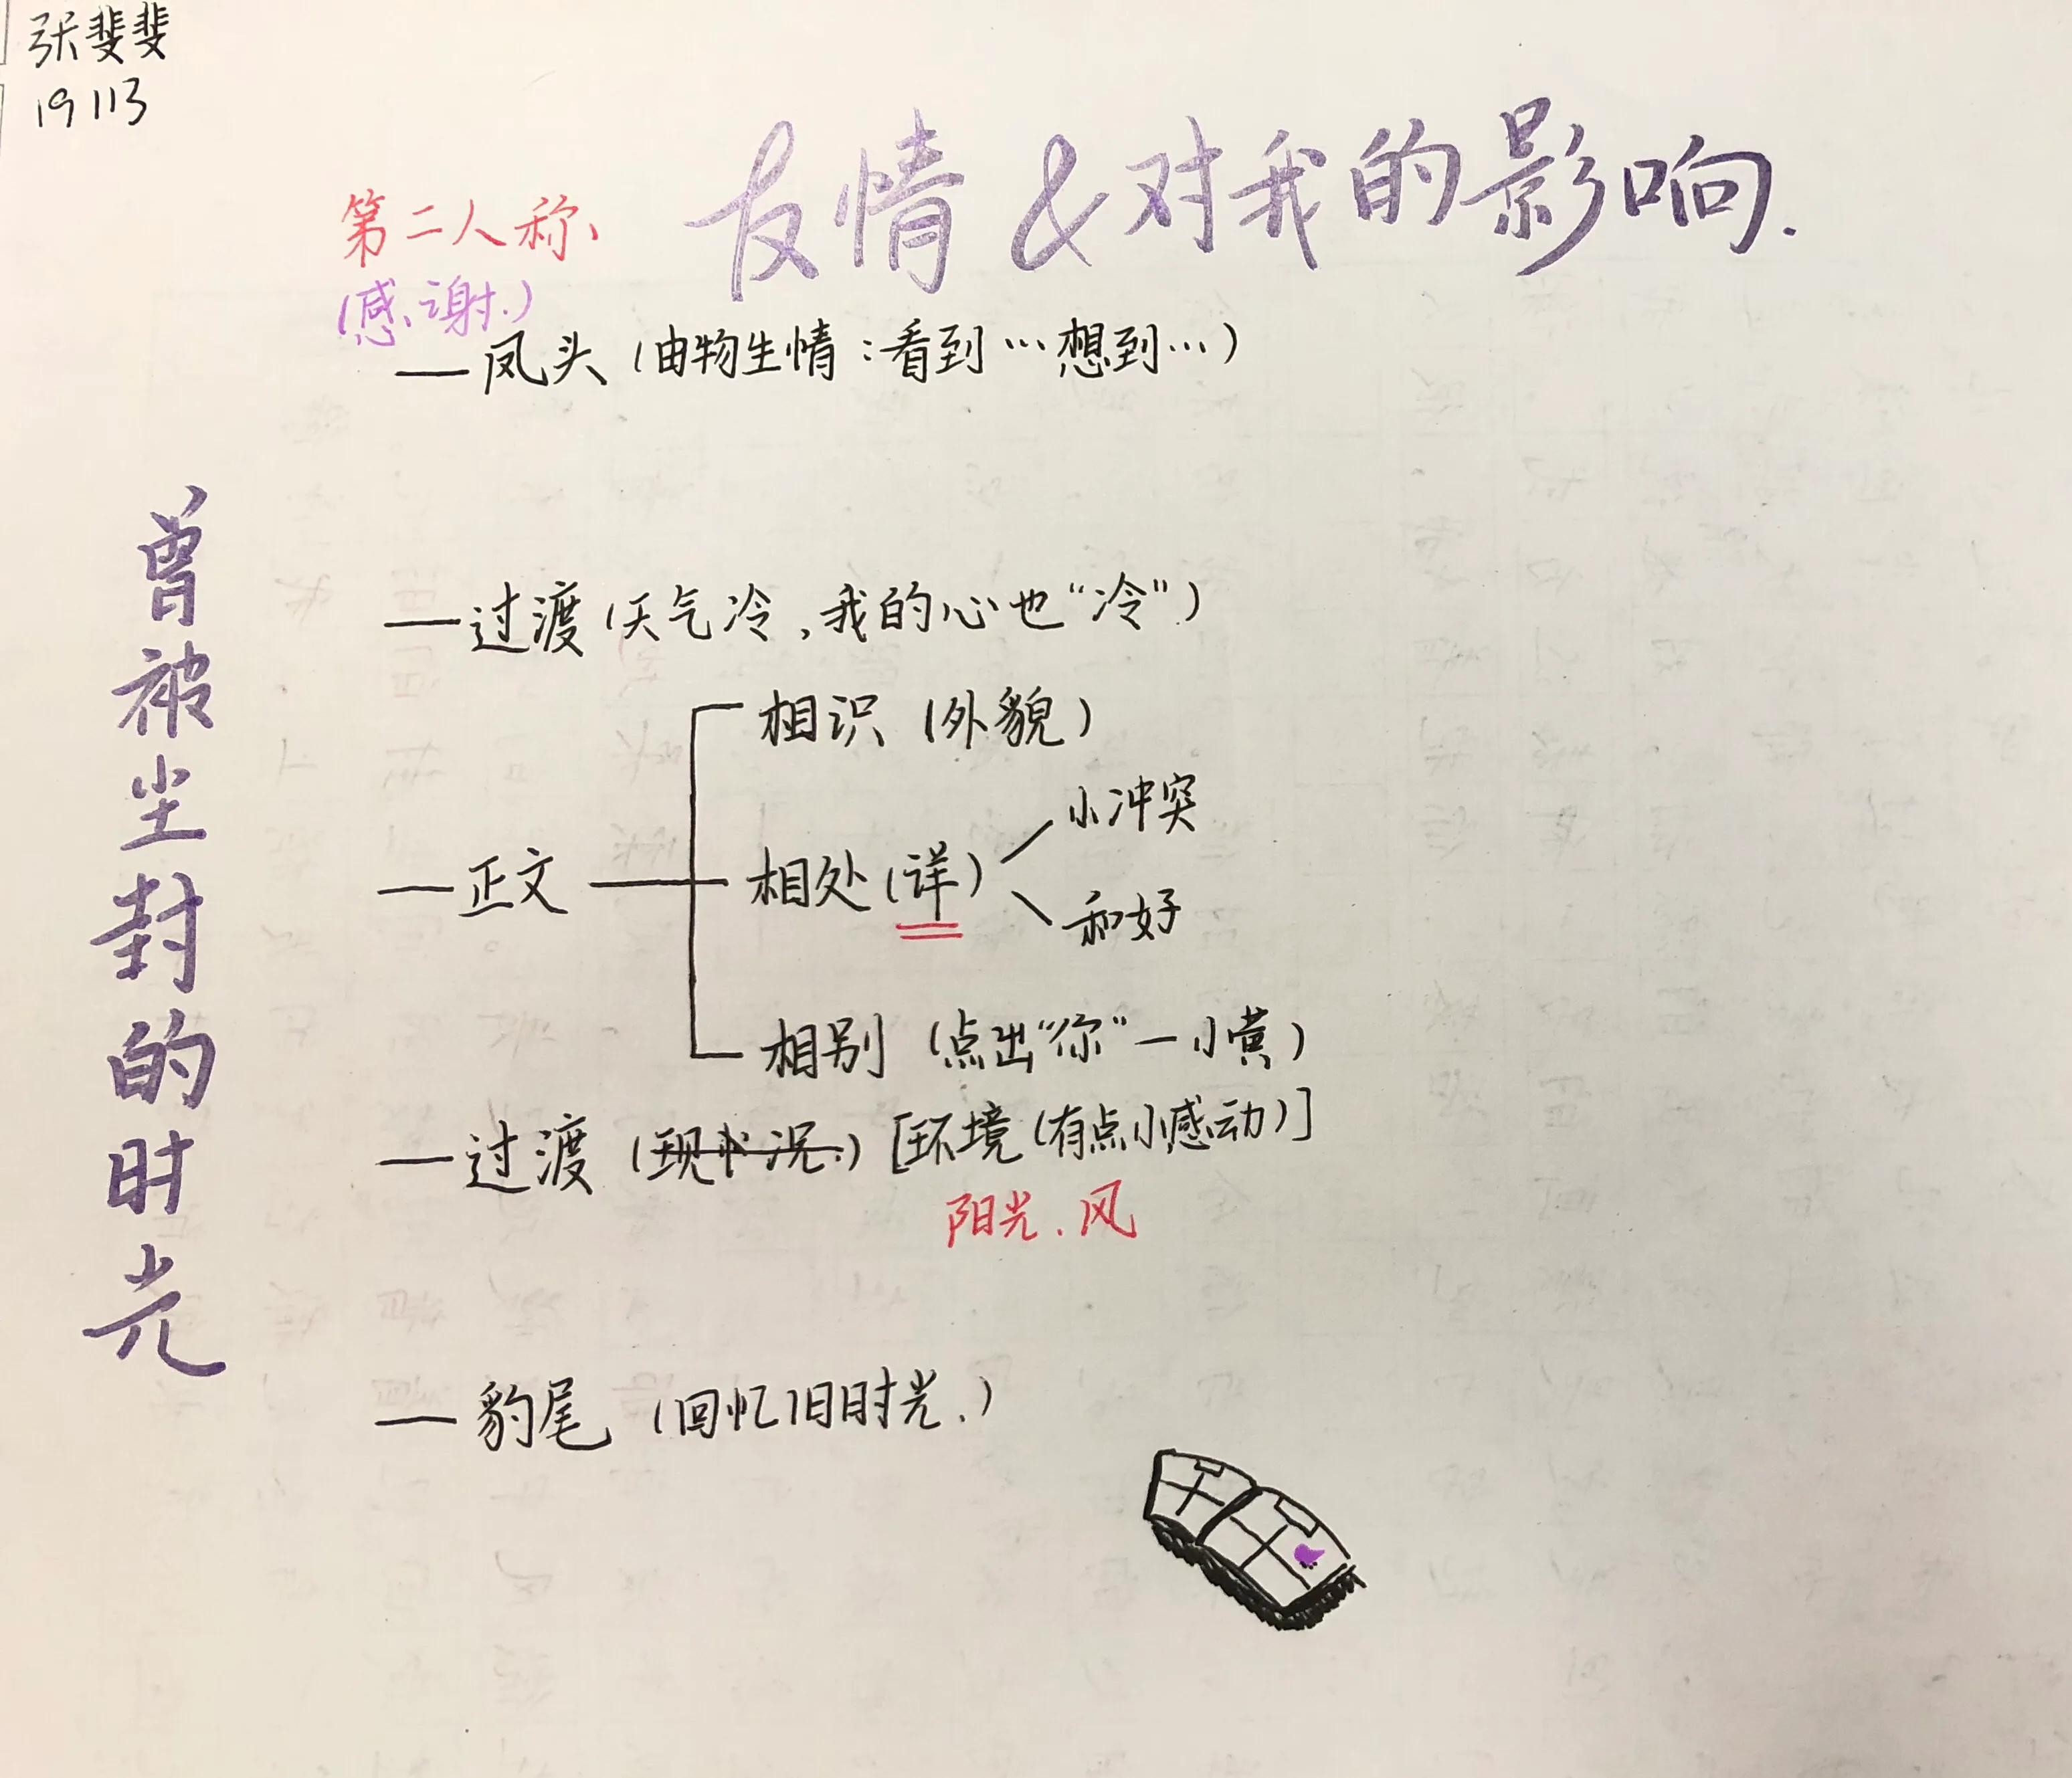 张斐斐
19113
友情 & 对我的影响.
第二人称、
(感谢.)
— 凤头 (由物生情：看到…想到…)
曾被尘封的时光
— 过渡 (天气冷,我的心也“冷”)
— 正文
相识 (外貌)
相处 (详)
小冲突
和好
相别 (点出“你”—小黄)
— 过渡 (现状况.) [环境 (有点小感动)]
阳光.风
— 豹尾 (回忆旧时光.)